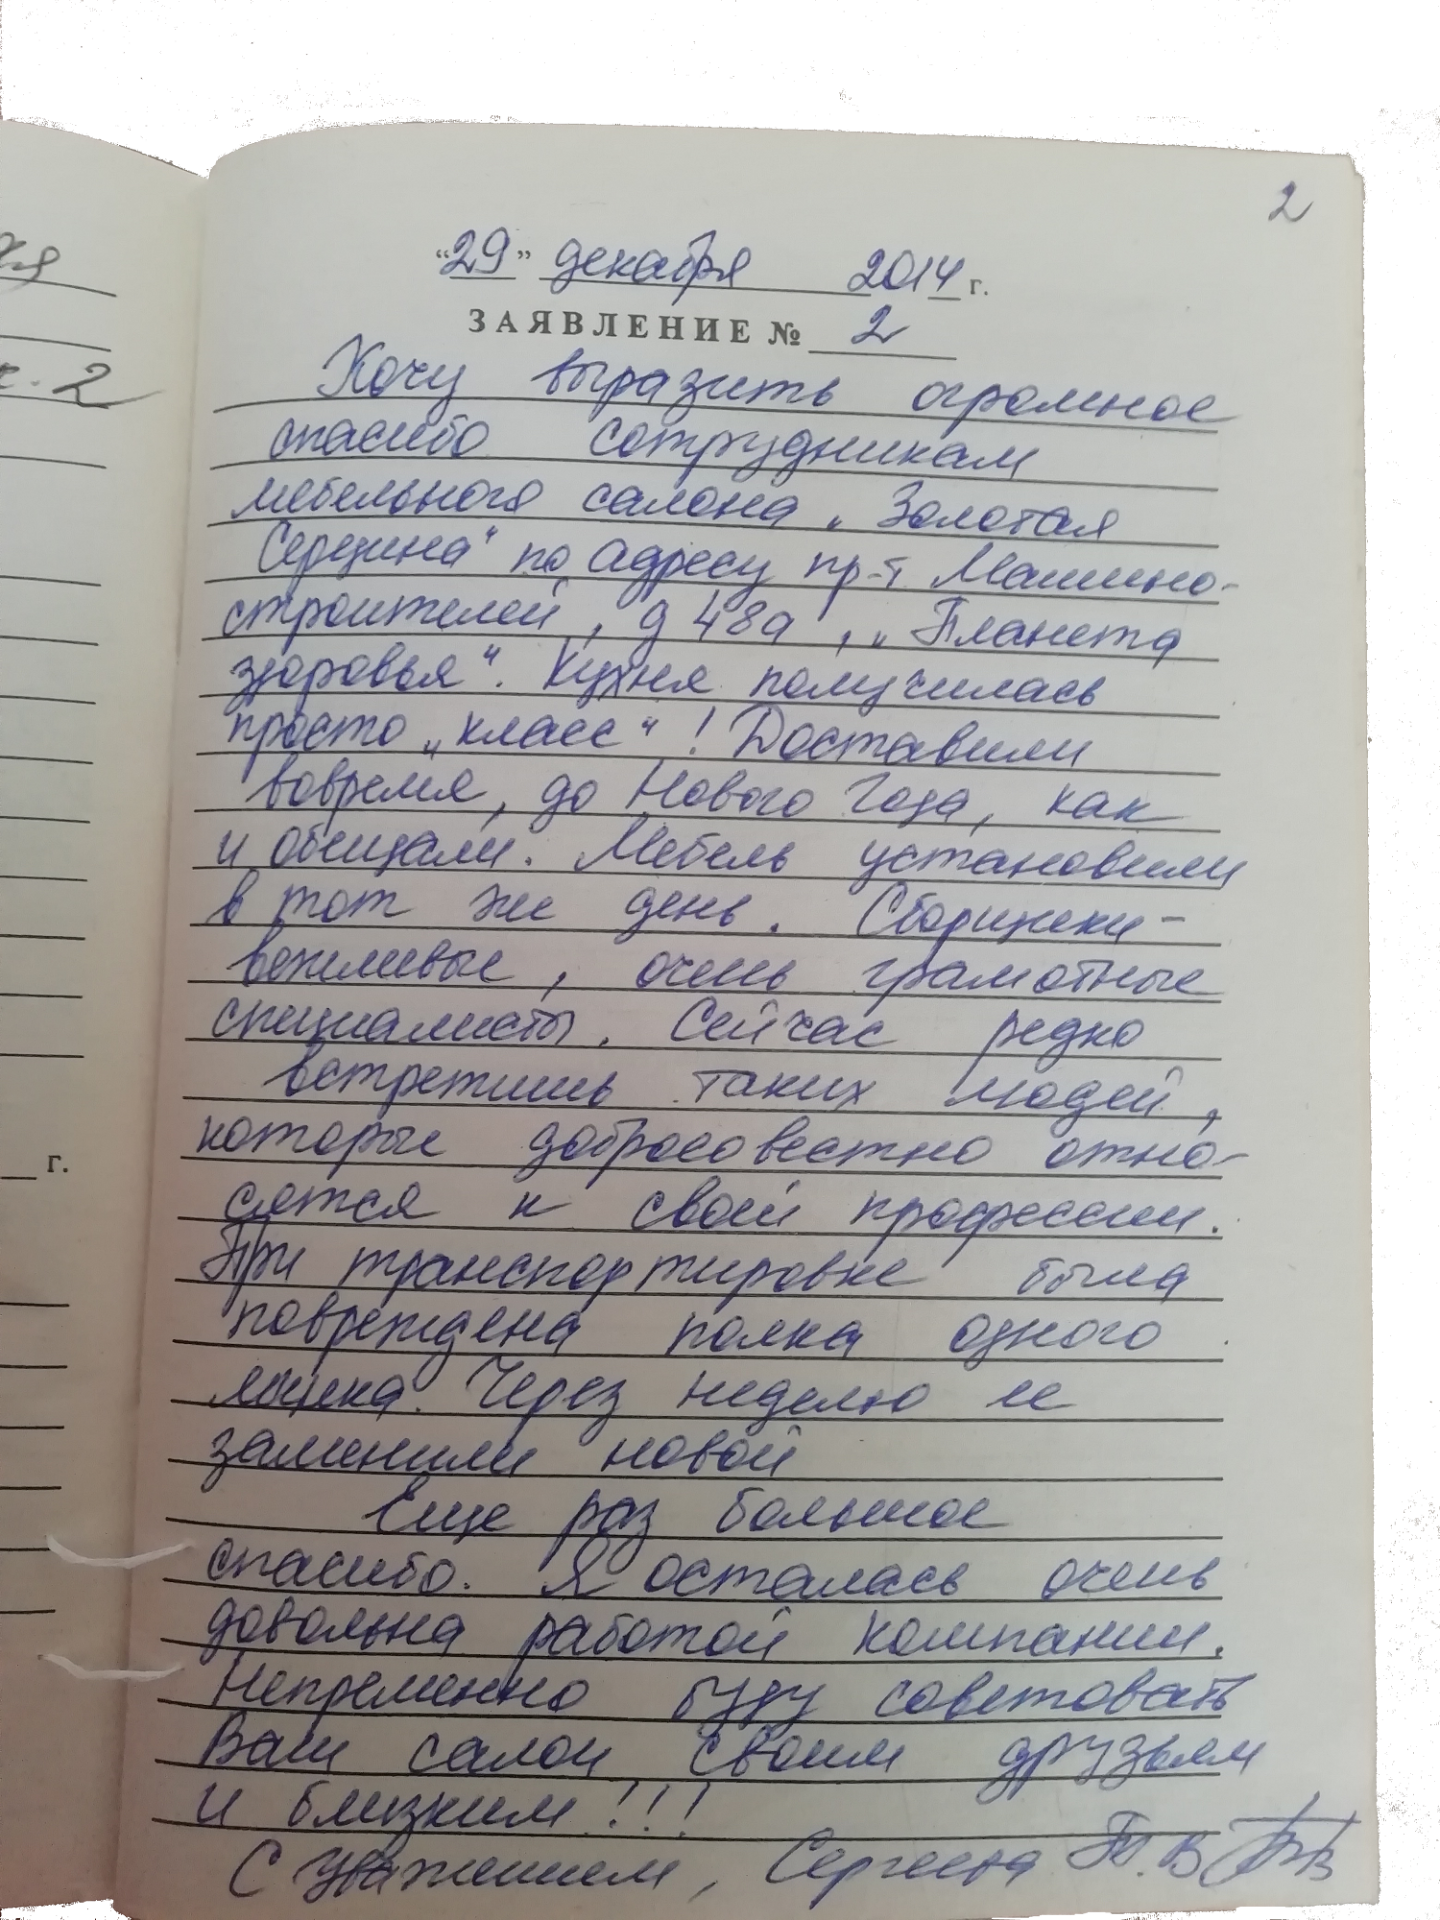 2
"29" декабря 2014 г.
ЗАЯВЛЕНИЕ № 2
Хочу выразить огромное
спасибо сотрудникам
мебельного салона „Золотая
Середина“ по адресу пр-т Машино-
строителей, д 48а, „Планета
здоровья“. Кухня получилась
просто „класс“! Доставили
вовремя, до Нового Года, как
и обещали. Мебель установили
в тот же день. Сборщики -
вежливые, очень грамотные
специалисты. Сейчас редко
встретишь таких людей,
которые добросовестно отно-
сятся к своей профессии.
При транспортировке была
повреждена полка одного
ящика. Через неделю ее
заменили новой
Еще раз большое
спасибо. Я осталась очень
довольна работой компании.
Непременно буду советовать
Ваш салон своим друзьям
и близким!!!
С уважением, Сергеева Т.В
2
г.